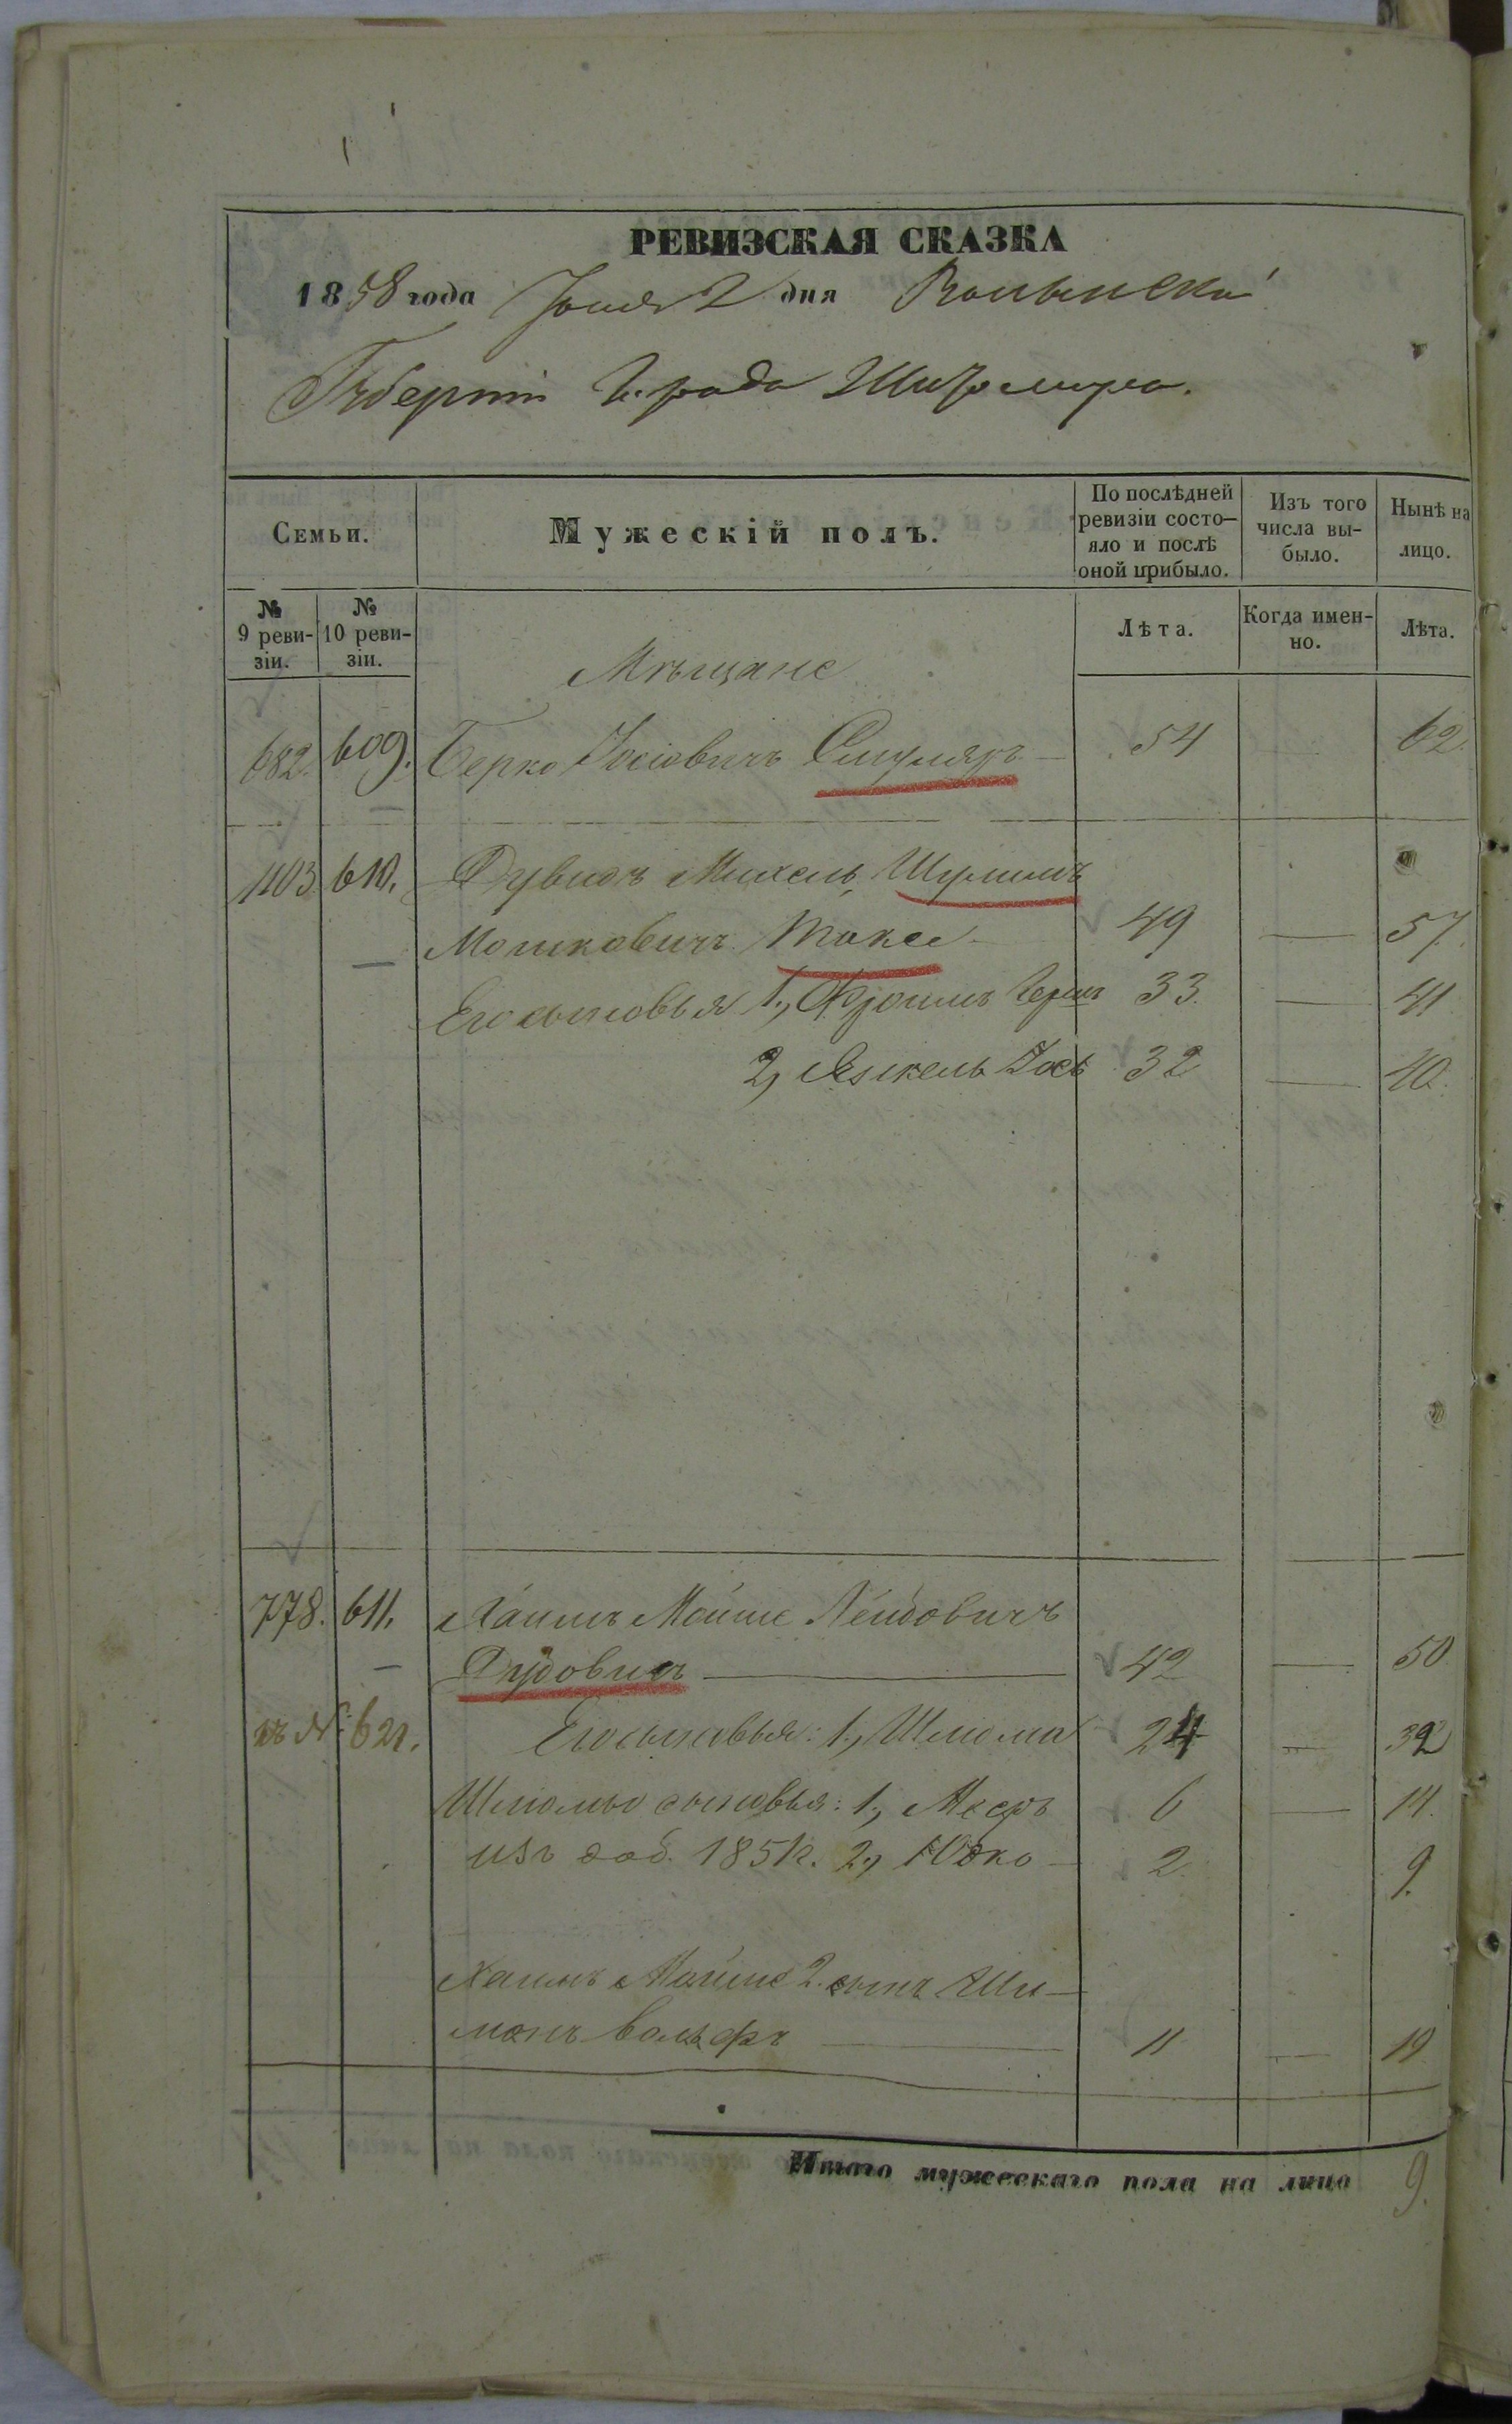 РЕВИЗСКАЯ СКАЗКА
1858 года Іюня 2 дня Волынской
Губерніи Города Житомира.
Семьи.
Мужескій полъ.
По послѣдней ревизіи состо-яло и послѣ оной прибыло.
Изъ того числа вы-было.
Нынѣ на лицо.
№ 9 реви-зіи.
№ 10 реви-зіи.
Лѣта.
Когда имен-но.
Лѣта.
Мѣщане
682. 609. Берко Іосіовичъ — 54 — 62.
1103 610. Дувидъ Михель Шулимъ
Мошковичъ Токса — 49 — 57.
Его сыновья 1, Фроимъ Гершъ 33. — 41
2, Янкель Іось 32 — 40.
778. 611. Хаимъ Мойше Лейбовичъ
Дудовичъ — 42 — 50
къ № 621. Его сыновья: 1, Шлиома 24 — 32
Шлиомы сыновья: 1, 6 — 14.
изъ доб. 1851 г. 2, Юдко — 2. 9.
Хаимъ Мойше 2. сынъ Ши-
монъ Вольфъ — 11 — 19
Итого мужескаго пола на лицо 9.